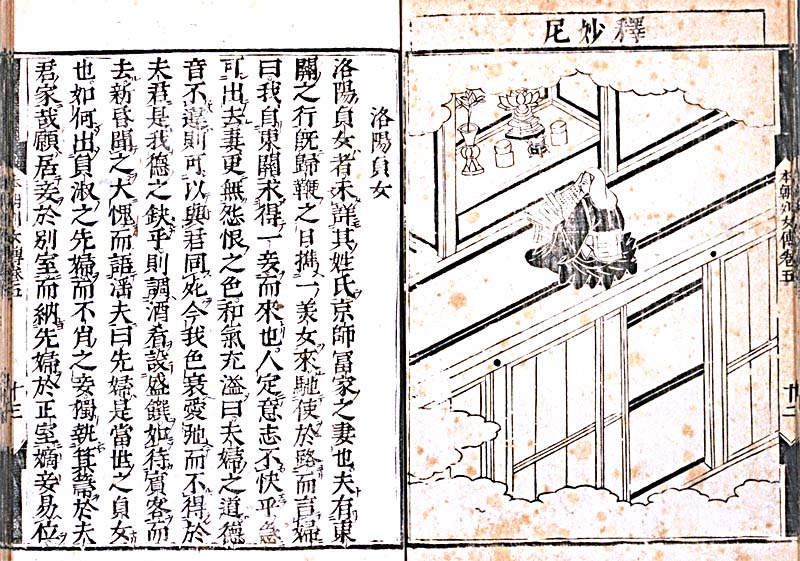 釋妙尼
本朝列女傳卷五
洛陽貞女
洛陽貞女者未詳其姓氏京師冨家之妻也夫有東
關之行既歸鞭之日携一美女來馳使於路而言婦
曰我自東關求得一妾而來也人定意志不快乎急
可出去妻更無怨恨之色和氣充溢曰夫婦之道德
音不違則可以與君同死今我色衰愛弛而不得於
夫君是我德之缺乎則調酒肴設盛饌如待賓客而
去新昏聞之大愧而語淫夫曰先婦是當世之貞女
也如何出貞淑之先婦而不肖之妾獨執箕箒於夫
君家哉願居妾於別室而納先婦於正室嫡妾易位
本朝列女傳卷五
十三